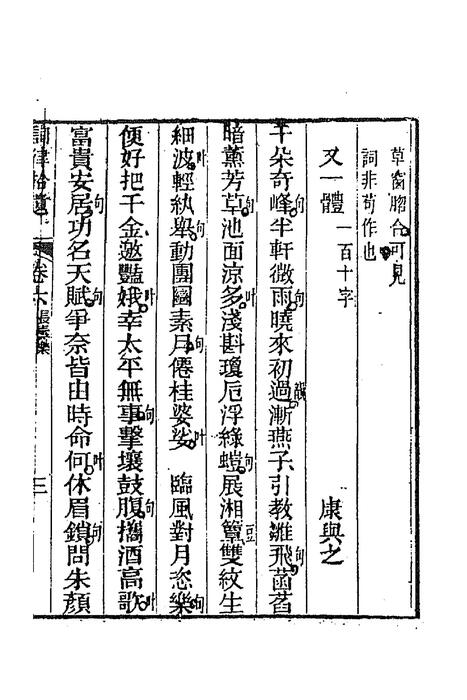 草窗脗合可見
詞非苟作也
又一體 一百十字 康與之
千朵奇峰句半軒微雨句曉來初過韻漸燕子引教雛飛句菡萏
暗薰芳草句池面涼多叶淺斟瓊卮浮綠螘句展湘簟豆雙紋生
細波叶輕紈舉句動團圓素月句僊桂婆娑叶 臨風對月恣樂句
便好把千金邀豔娥叶幸太平無事句擊壤鼓腹句攜酒高歌叶
富貴安居句功名天賦句爭奈皆由時命何叶休眉鎖句問朱顏
詞律拾遺 卷六 長壽樂 三